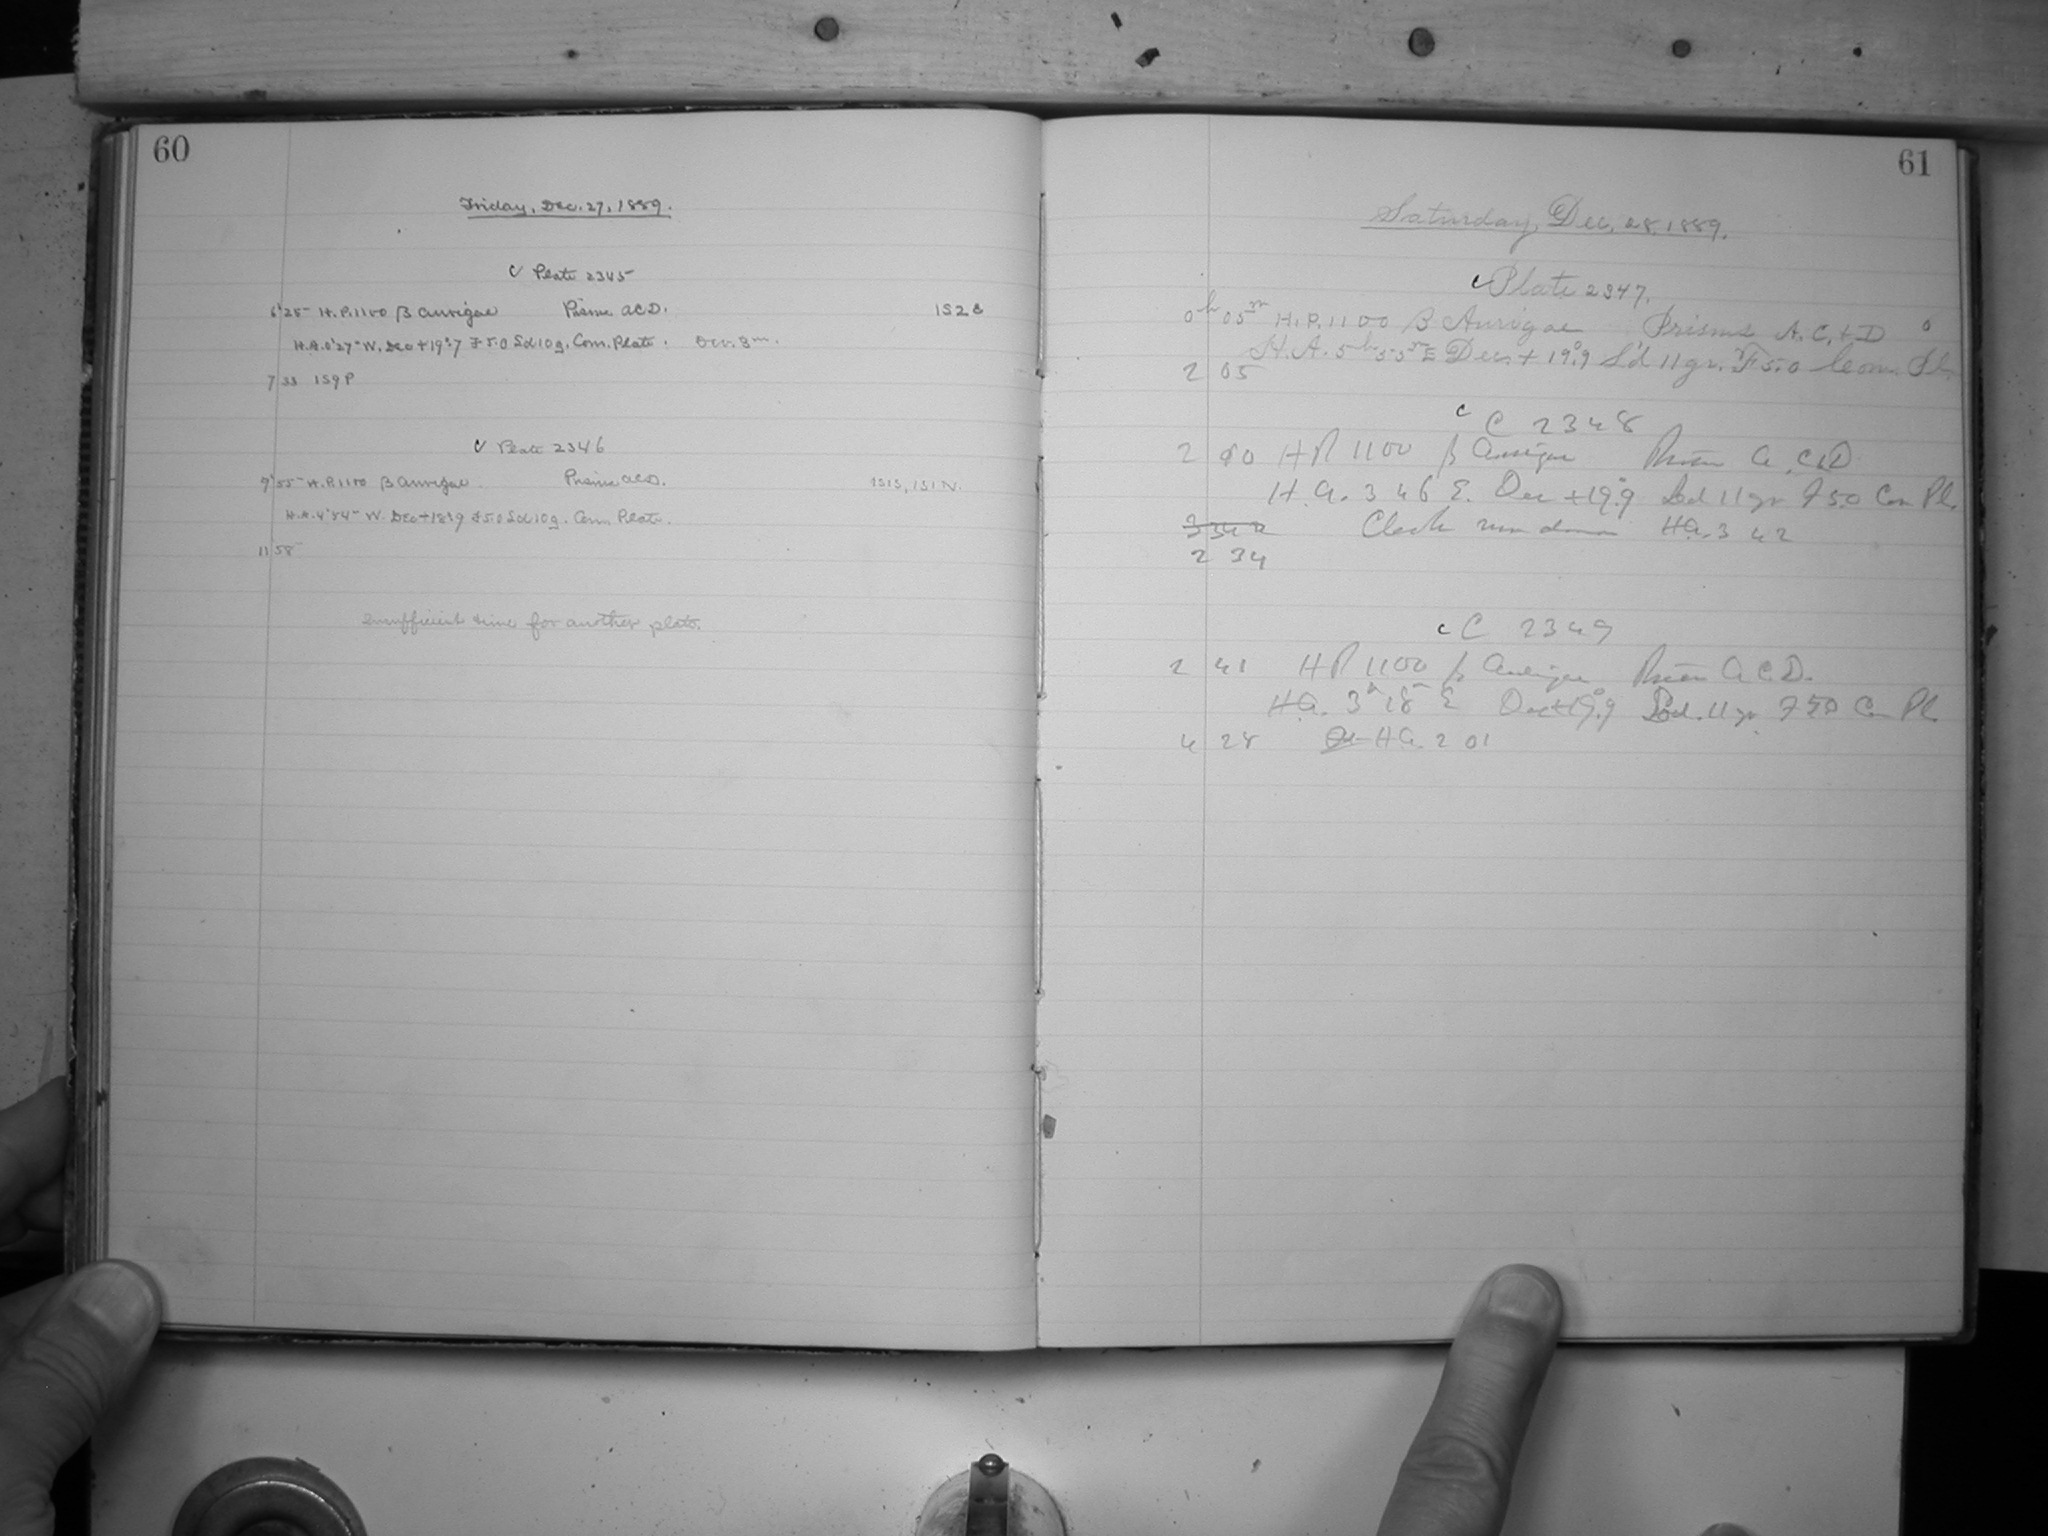 60
Friday, Dec. 27, 1889.
C Plate 2345
6 25 H.P. 1100 β Aurigae Prisms A C D. 1S2S
H.A. 0h27m W. Dec +19°.7 F 5.0 Sd 10 g. Com. Plate. Dev. 8m.
7 33 1S9P
C Plate 2346
9 55 H.P. 1100 β Aurigae Prisms A C D. 1S1S, 1S1N.
H.A. 4h54m W. Dec +18°.9 F 5.0 Sd 10 g. Com. Plate.
11 58
Insufficient time for another plate.
61
Saturday, Dec. 28, 1889.
C Plate 2347.
0h 05m H.P. 1100 β Aurigae Prisms A. C. + D 0
H.A. 5h 53m E Dec. + 19°.9 S'd 11 gr. F 5.0 Com. Pl.
2 05
C C 2348
2 10 HP 1100 β Aurigae Prism A, C & D
H.A. 3 46 E. Dec +19°.9 Sd 11 gr F 5.0 Com Pl.
Clock run down HA. 3 42
2 34
C C 2349
2 41 HP 1100 β Aurigae Prism A C D.
H.A. 3h 18m E Dec +19°.9 Sd. 11 gr. F 5.0 Com Pl.
4 28 HA. 2 01